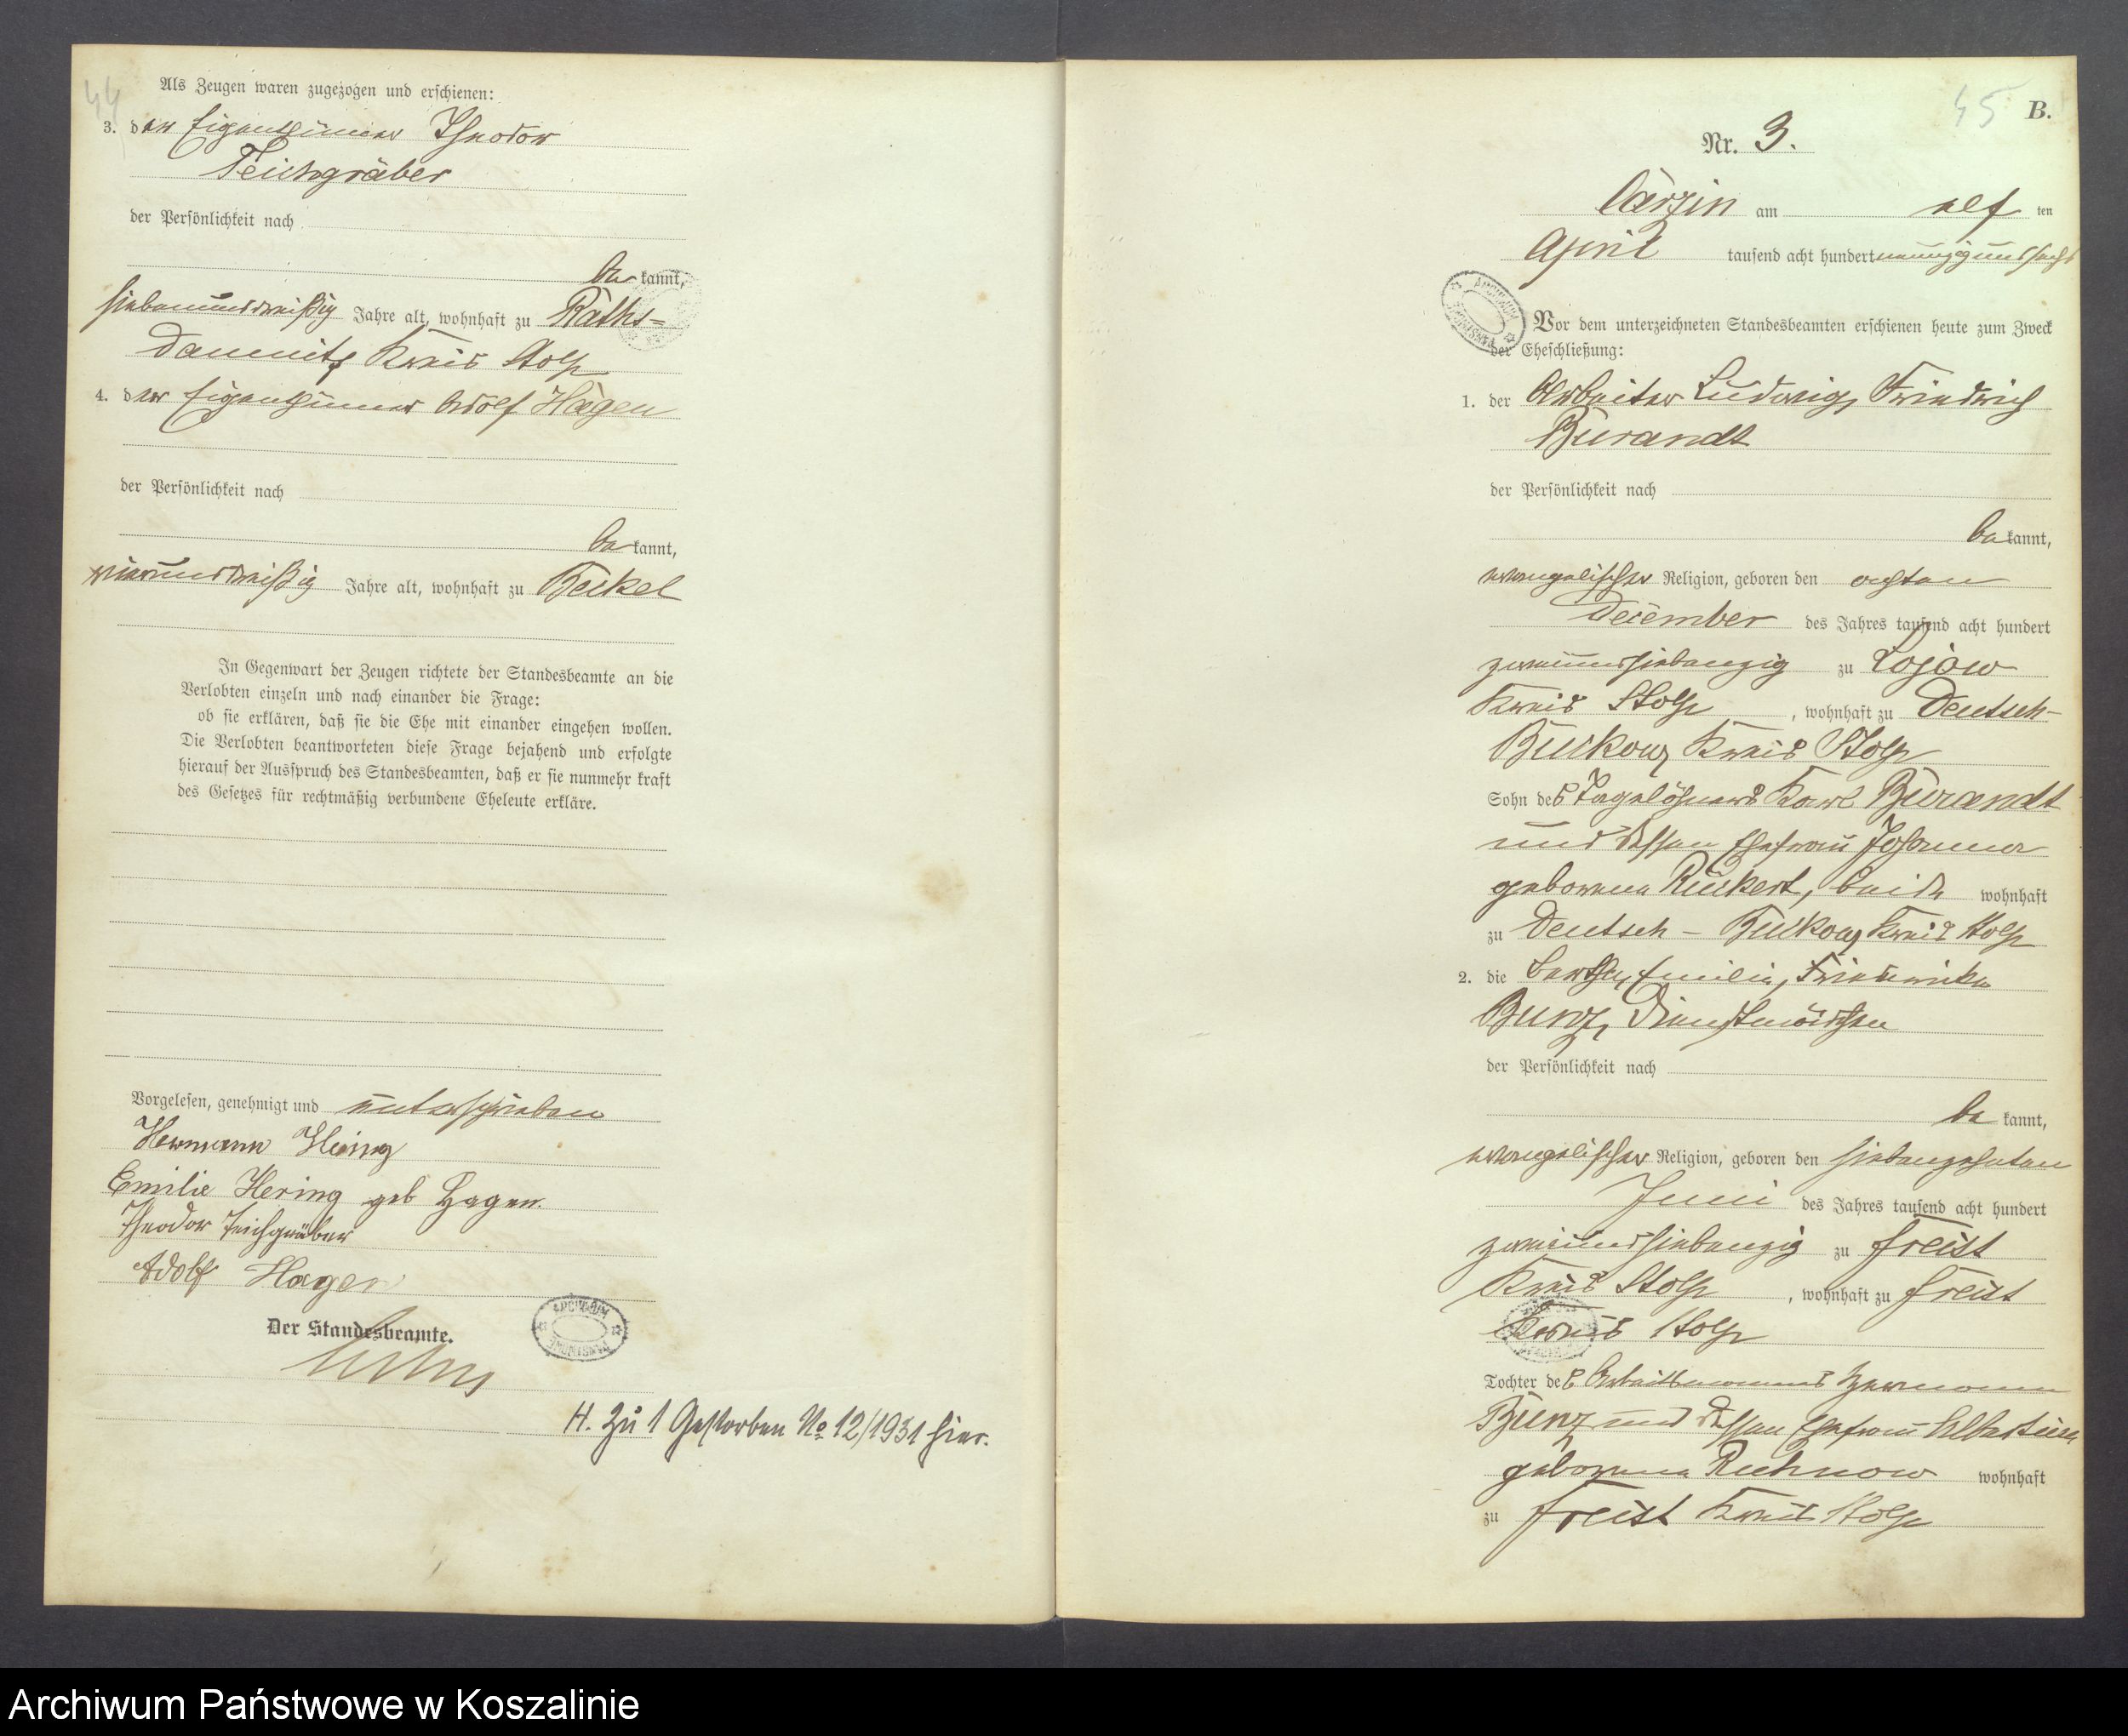 44
Als Zeugen waren zugezogen und erschienen:
3. der Eigenthümer Theodor
Teichgräber
der Persönlichkeit nach
bekannt,
siebenunddreißig Jahre alt, wohnhaft zu Raths-
Damnitz Kreis Stolp
4. der Eigenthümer Adolf Hagen
der Persönlichkeit nach
bekannt,
vierunddreißig Jahre alt, wohnhaft zu Beckel
In Gegenwart der Zeugen richtete der Standesbeamte an die
Verlobten einzeln und nach einander die Frage:
ob sie erklären, daß sie die Ehe mit einander eingehen wollen.
Die Verlobten beantworteten diese Frage bejahend und erfolgte
hierauf der Ausspruch des Standesbeamten, daß er sie nunmehr kraft
des Gesetzes für rechtmäßig verbundene Eheleute erkläre.
Vorgelesen, genehmigt und unterschrieben
Hermann Hering
Emilie Hering geb Hagen.
Theodor Teichgräber
Adolf Hagen
Der Standesbeamte.
ARCHIWUM
H. Zu 1 Gestorben No 12/1931 hier.
45
B.
Nr. 3.
Carzin am elf ten
April tausend acht hundert neunzig und sechs
ARCHIWUM
Vor dem unterzeichneten Standesbeamten erschienen heute zum Zweck
der Eheschließung:
1. der Arbeiter Ludwig, Friedrich
Burandt
der Persönlichkeit nach
bekannt,
evangelischer Religion, geboren den achten
December des Jahres tausend acht hundert
zweiundsiebenzig zu Lojow
Kreis Stolp, wohnhaft zu Deutsch-
Buckow, Kreis Stolp
Sohn des Tagelöhners Karl Burandt
und dessen Ehefrau Johanna
geborene Rückert, beide wohnhaft
zu Deutsch-Buckow, Kreis Stolp
2. die Bertha, Emilie, Friederike
Bunz, Dienstmädchen
der Persönlichkeit nach
bekannt,
evangelischer Religion, geboren den siebenzehnten
Juni des Jahres tausend acht hundert
zweiundsiebenzig zu Freist
Kreis Stolp, wohnhaft zu Freist
Kreis Stolp
Tochter des Arbeitsmannes Hermann
Bunz und dessen Ehefrau Albertine
geborene Ruhnow wohnhaft
zu Freist Kreis Stolp
Archiwum Państwowe w Koszalinie